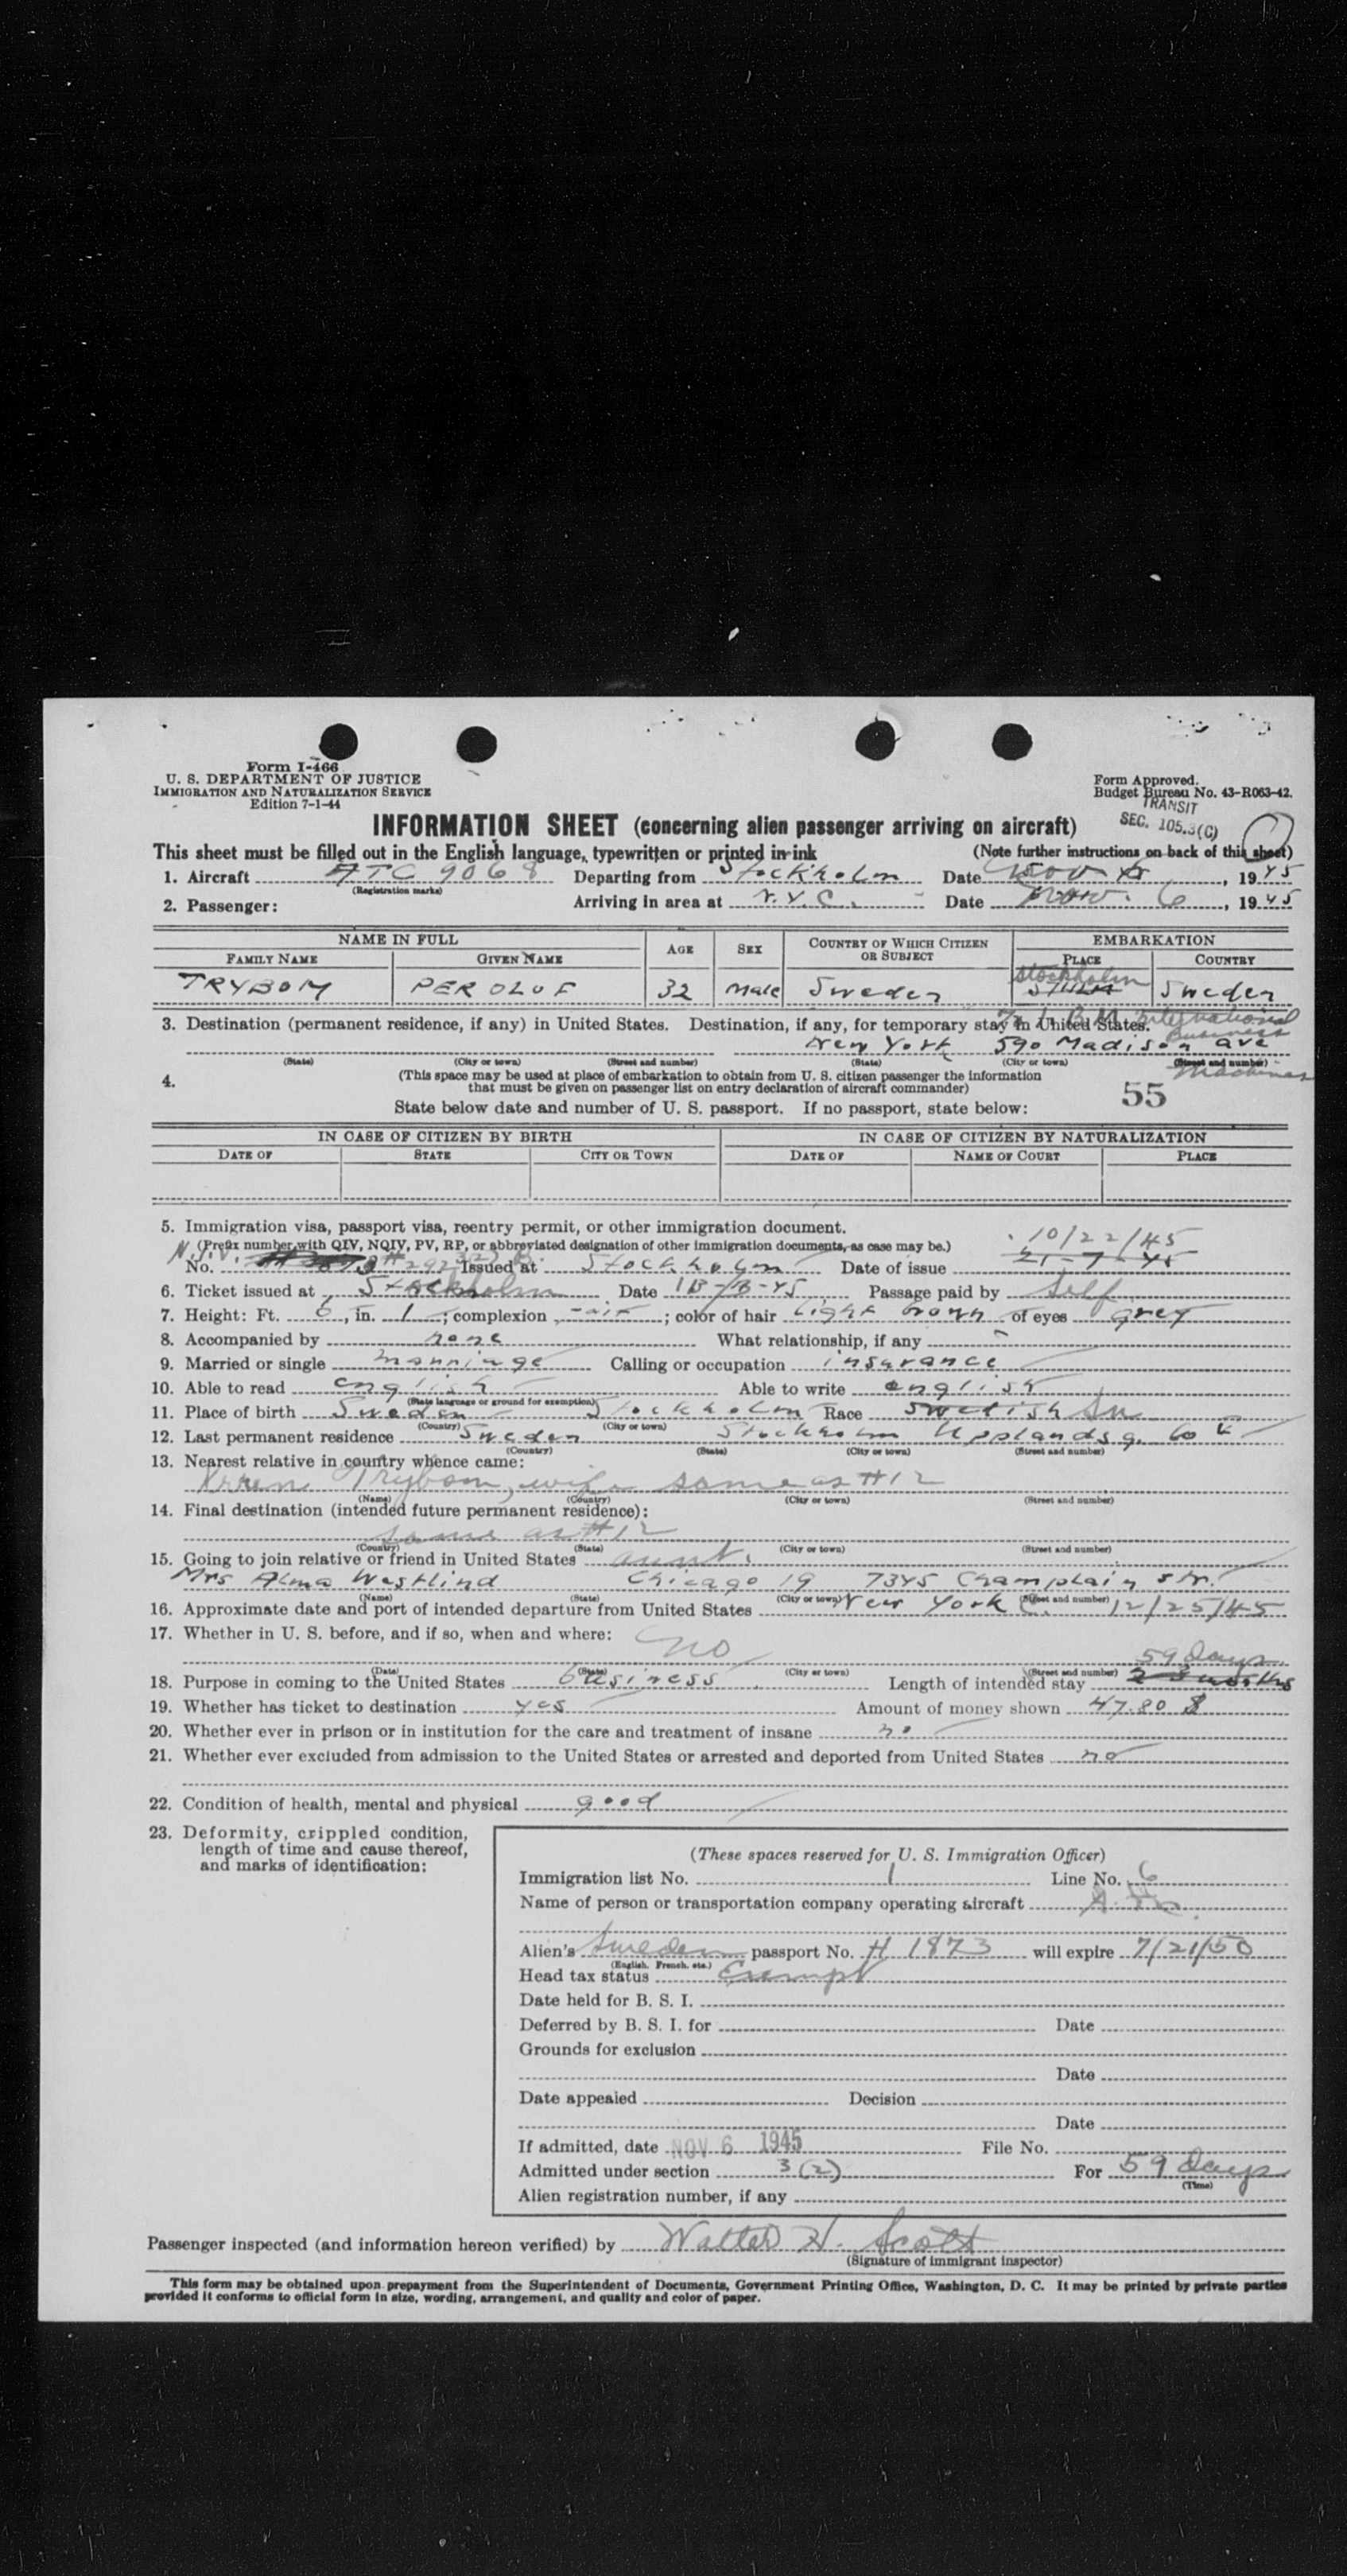 Form I-466
U. S. DEPARTMENT OF JUSTICE
IMMIGRATION AND NATURALIZATION SERVICE
Edition 7-1-44
Form Approved.
Budget Bureau No. 43-R063-42.
TRANSIT
SEC. 105.3(C)
INFORMATION SHEET (concerning alien passenger arriving on aircraft)
This sheet must be filled out in the English language, typewritten or printed in ink (Note further instructions on back of this sheet)
1. Aircraft ATC 9068 Departing from Stockholm Date Nov , 1945
(Registration marks)
2. Passenger: Arriving in area at N.Y.C. Date Nov. 6, 1945
NAME IN FULL AGE SEX COUNTRY OF WHICH CITIZEN OR SUBJECT EMBARKATION
FAMILY NAME GIVEN NAME PLACE COUNTRY
TRYBOM PER OLOF 32 Male Sweden Stockholm Sweden
3. Destination (permanent residence, if any) in United States. Destination, if any, for temporary stay in United States. I.B.M. International Business Machines
New York 590 Madison ave
(State) (City or town) (Street and number) (State) (City or town) (Street and number)
4. (This space may be used at place of embarkation to obtain from U. S. citizen passenger the information
that must be given on passenger list on entry declaration of aircraft commander)
55
State below date and number of U. S. passport. If no passport, state below:
IN CASE OF CITIZEN BY BIRTH IN CASE OF CITIZEN BY NATURALIZATION
DATE OF STATE CITY OR TOWN DATE OF NAME OF COURT PLACE
5. Immigration visa, passport visa, reentry permit, or other immigration document.
(Prefix number with QIV, NQIV, PV, RP, or abbreviated designation of other immigration documents, as case may be.) 10/22/45
No. Issued at Stockholm Date of issue 21-7-45
6. Ticket issued at Stockholm Date Passage paid by Self
7. Height: Ft. 6, in. 1; complexion fair; color of hair light brown of eyes grey
8. Accompanied by none What relationship, if any -
9. Married or single marriage Calling or occupation insurance
10. Able to read english Able to write english
(State language or ground for exemption)
11. Place of birth Sweden Stockholm Race Swedish
(Country) (City or town)
12. Last permanent residence Sweden Stockholm Upplandsg. 60
(Country) (State) (City or town) (Street and number)
13. Nearest relative in country whence came:
Trybom, wife same as #12
(Name) (Country) (City or town) (Street and number)
14. Final destination (intended future permanent residence):
same as #12
(Country) (State) (City or town) (Street and number)
15. Going to join relative or friend in United States aunt.
Mrs Alma Westlind Chicago 19 7345 Champlain str.
(Name) (State) (City or town) (Street and number)
16. Approximate date and port of intended departure from United States New York 12/25/45
17. Whether in U. S. before, and if so, when and where: no
(Date) (State) (City or town) (Street and number)
59 Days
18. Purpose in coming to the United States business Length of intended stay 2-3 months
19. Whether has ticket to destination yes Amount of money shown 47.80 $
20. Whether ever in prison or in institution for the care and treatment of insane no
21. Whether ever excluded from admission to the United States or arrested and deported from United States no
22. Condition of health, mental and physical good
23. Deformity, crippled condition,
length of time and cause thereof,
and marks of identification:
(These spaces reserved for U. S. Immigration Officer)
Immigration list No. 1 Line No. 6
Name of person or transportation company operating aircraft
Alien's Sweden passport No. H 1873 will expire 7/21/50
(English, French, etc.)
Head tax status Exempt
Date held for B. S. I.
Deferred by B. S. I. for Date
Grounds for exclusion
Date
Date appealed Decision
Date
If admitted, date NOV 6 1945 File No.
Admitted under section 3(2) For 59 Days
(Time)
Alien registration number, if any
Passenger inspected (and information hereon verified) by Walter H. Scott
(Signature of immigrant inspector)
This form may be obtained upon prepayment from the Superintendent of Documents, Government Printing Office, Washington, D. C. It may be printed by private parties
provided it conforms to official form in size, wording, arrangement, and quality and color of paper.